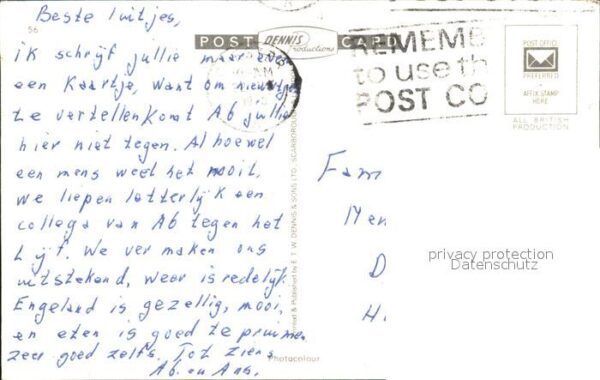 Beste luitjes,
56
POST CARD
DENNIS
Productions
ik schrijf jullie maar even
een Kaartje, want om nieuwtjes
te vertellen komt Ab jullie
hier niet tegen. Alhoewel
een mens weet het nooit.
we liepen letterlijk een
collega van Ab tegen het
Lijf. We vermaken ons
uitstekend, weer is redelijk.
Engeland is gezellig, mooi,
en eten is goed te pruimen
zeer goed zelfs. Tot Ziens
Ab en Ans.
Photocolour
& Published by E. T. W. DENNIS & SONS LTD., SCARBOROUGH
REMEMB
to use th
POST CO
POST OFFICE
PREFERRED
AFFIX STAMP
HERE
ALL BRITISH
PRODUCTION
Fam
Mer
D
H.
privacy protection
Datenschutz